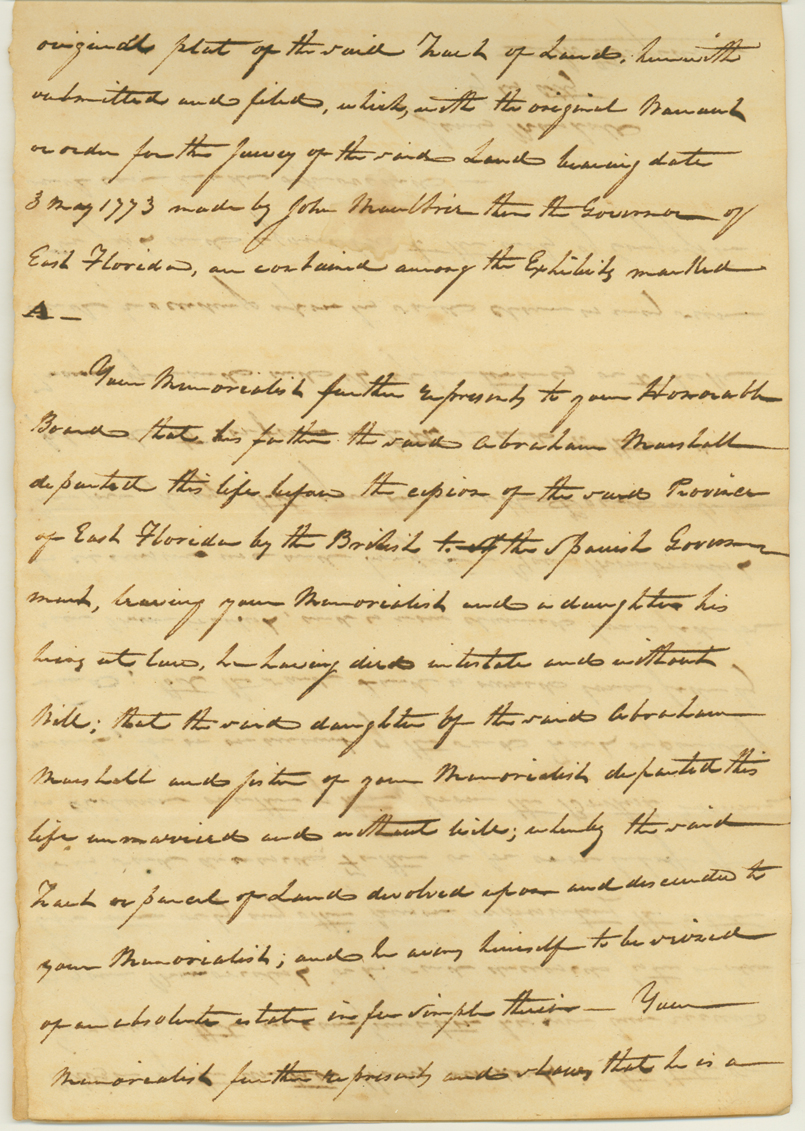 original plat of the said Tract of Land, herewith
submitted and filed, which, with the original Warrant
or order for the survey of the said Land bearing date
3 May 1773 made by John Moultrie then the Governor of
East Florida, are contained among the Exhibits marked
A —
Your Memorialist further represents to your Honorable
Board that his father the said Abraham Marshall
departed this life before the cession of the said Province
of East Florida by the British to the Spanish Govern
ment, leaving your Memorialist and a daughter his
heirs at law, he having died intestate and without
Will; that the said daughter of the said Abraham
Marshall and sister of your Memorialist departed this
life unmarried and without will; whereby the said
Tract or parcel of Land devolved upon and descended to
your Memorialist; and he avers himself to be seized
of an absolute estate in fee simple therein — Your
Memorialist further represents and shews, that he is a